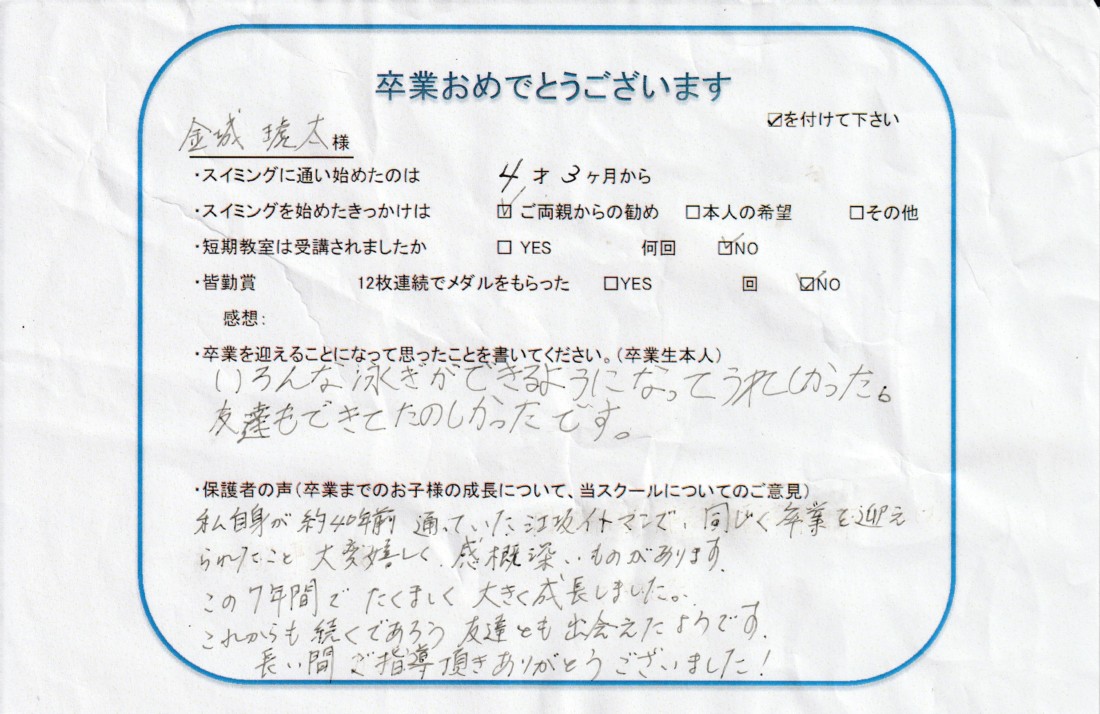 卒業おめでとうございます
☑を付けて下さい
金城 琥太様
・スイミングに通い始めたのは 4才3ヶ月から
・スイミングを始めたきっかけは ☑ご両親からの勧め □本人の希望 □その他
・短期教室は受講されましたか □ YES 何回 ☑NO
・皆勤賞 12枚連続でメダルをもらった □YES 回 ☑NO
感想:
・卒業を迎えることになって思ったことを書いてください。(卒業生本人)
いろんな泳ぎができるようになってうれしかった。
友達もできてたのしかったです。
・保護者の声(卒業までのお子様の成長について、当スクールについてのご意見)
私自身が約40年前 通っていた江坂イトマンで、同じく卒業を迎え
られたこと 大変嬉しく、感概深いものがあります。
この7年間で たくましく 大きく成長しました。
これからも続くであろう 友達とも 出会えたようです。
長い間 ご指導頂きありがとうございました!